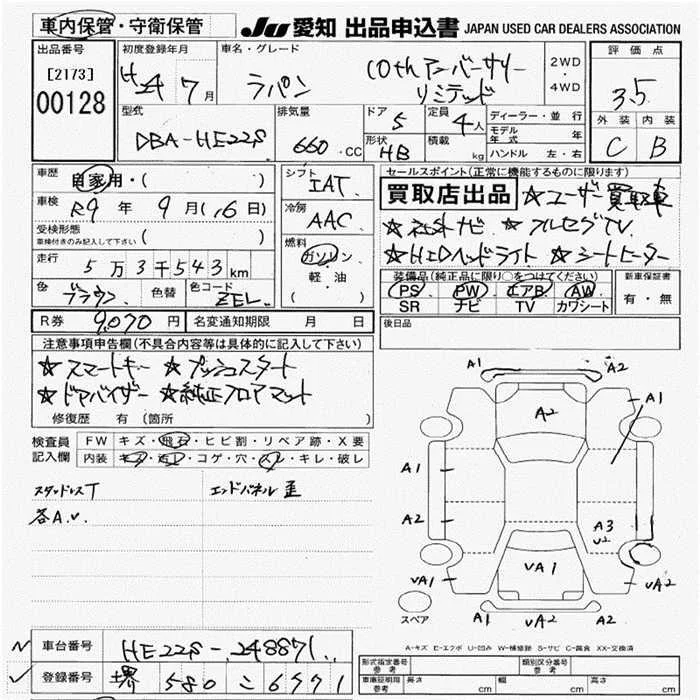 車内保管・守衛保管 JU 愛知 出品申込書 JAPAN USED CAR DEALERS ASSOCIATION
出品番号 [2173] 00128
初度登録年月 H24 7月
車名・グレード ラパン 10thアニバーサリーリミテッド
2WD・4WD
評価点 3.5
外装 C 内装 B
型式 DBA-HE22S
排気量 660.CC
ドア 5 形状 HB
定員 4人 積載 kg
ディーラー・並行
モデル年式 年
ハンドル 左・右
車歴 自家用・( )
車検 R9年 9月(16日)
受検形態 車検付きのみ記入して下さい ( )
走行 5万3千543km
色 ブラウン 色替 色コード ZEL
シフト IAT
冷房 AAC
燃料 ガソリン 軽・油 ( )
セールスポイント(正常に機能するものに限ります)
買取店出品 ☆ユーザー買取車
☆社外ナビ ☆フルセグTV
☆HIDヘッドライト ☆シートヒーター
装備品(純正品に限り○をつけてください)
PS PW エアB AW
SR ナビ TV カワシート
新車保証書 有・無
R券 9,070円 名変通知期限 月 日
後日品
注意事項申告欄(不具合内容等は具体的に記入して下さい)
☆スマートキー ☆プッシュスタート
☆ドアバイザー ☆純正フロアマット
修復歴 有 (箇所 )
検査員記入欄
FW キズ・飛石・ヒビ割・リペア跡・X要
内装 キズ・汚レ・コゲ・穴・スレ・キレ・破レ
スタッドレスT エンドパネル歪
各A.U.
A1 A2
A2 A1
A1
A2 A3 U2
UA1 UA1 UA2
スペア A1 UA2 A2
A-キズ E-エクボ U-凹み W-補修跡 S-サビ C-腐食 XX-交換済
車台番号 HE22S-248871
登録番号 堺 580 こ 6971
形式指定番号 参考 類別区分番号 参考
車庫証明用 参考 長さ cm 幅 cm 高さ cm